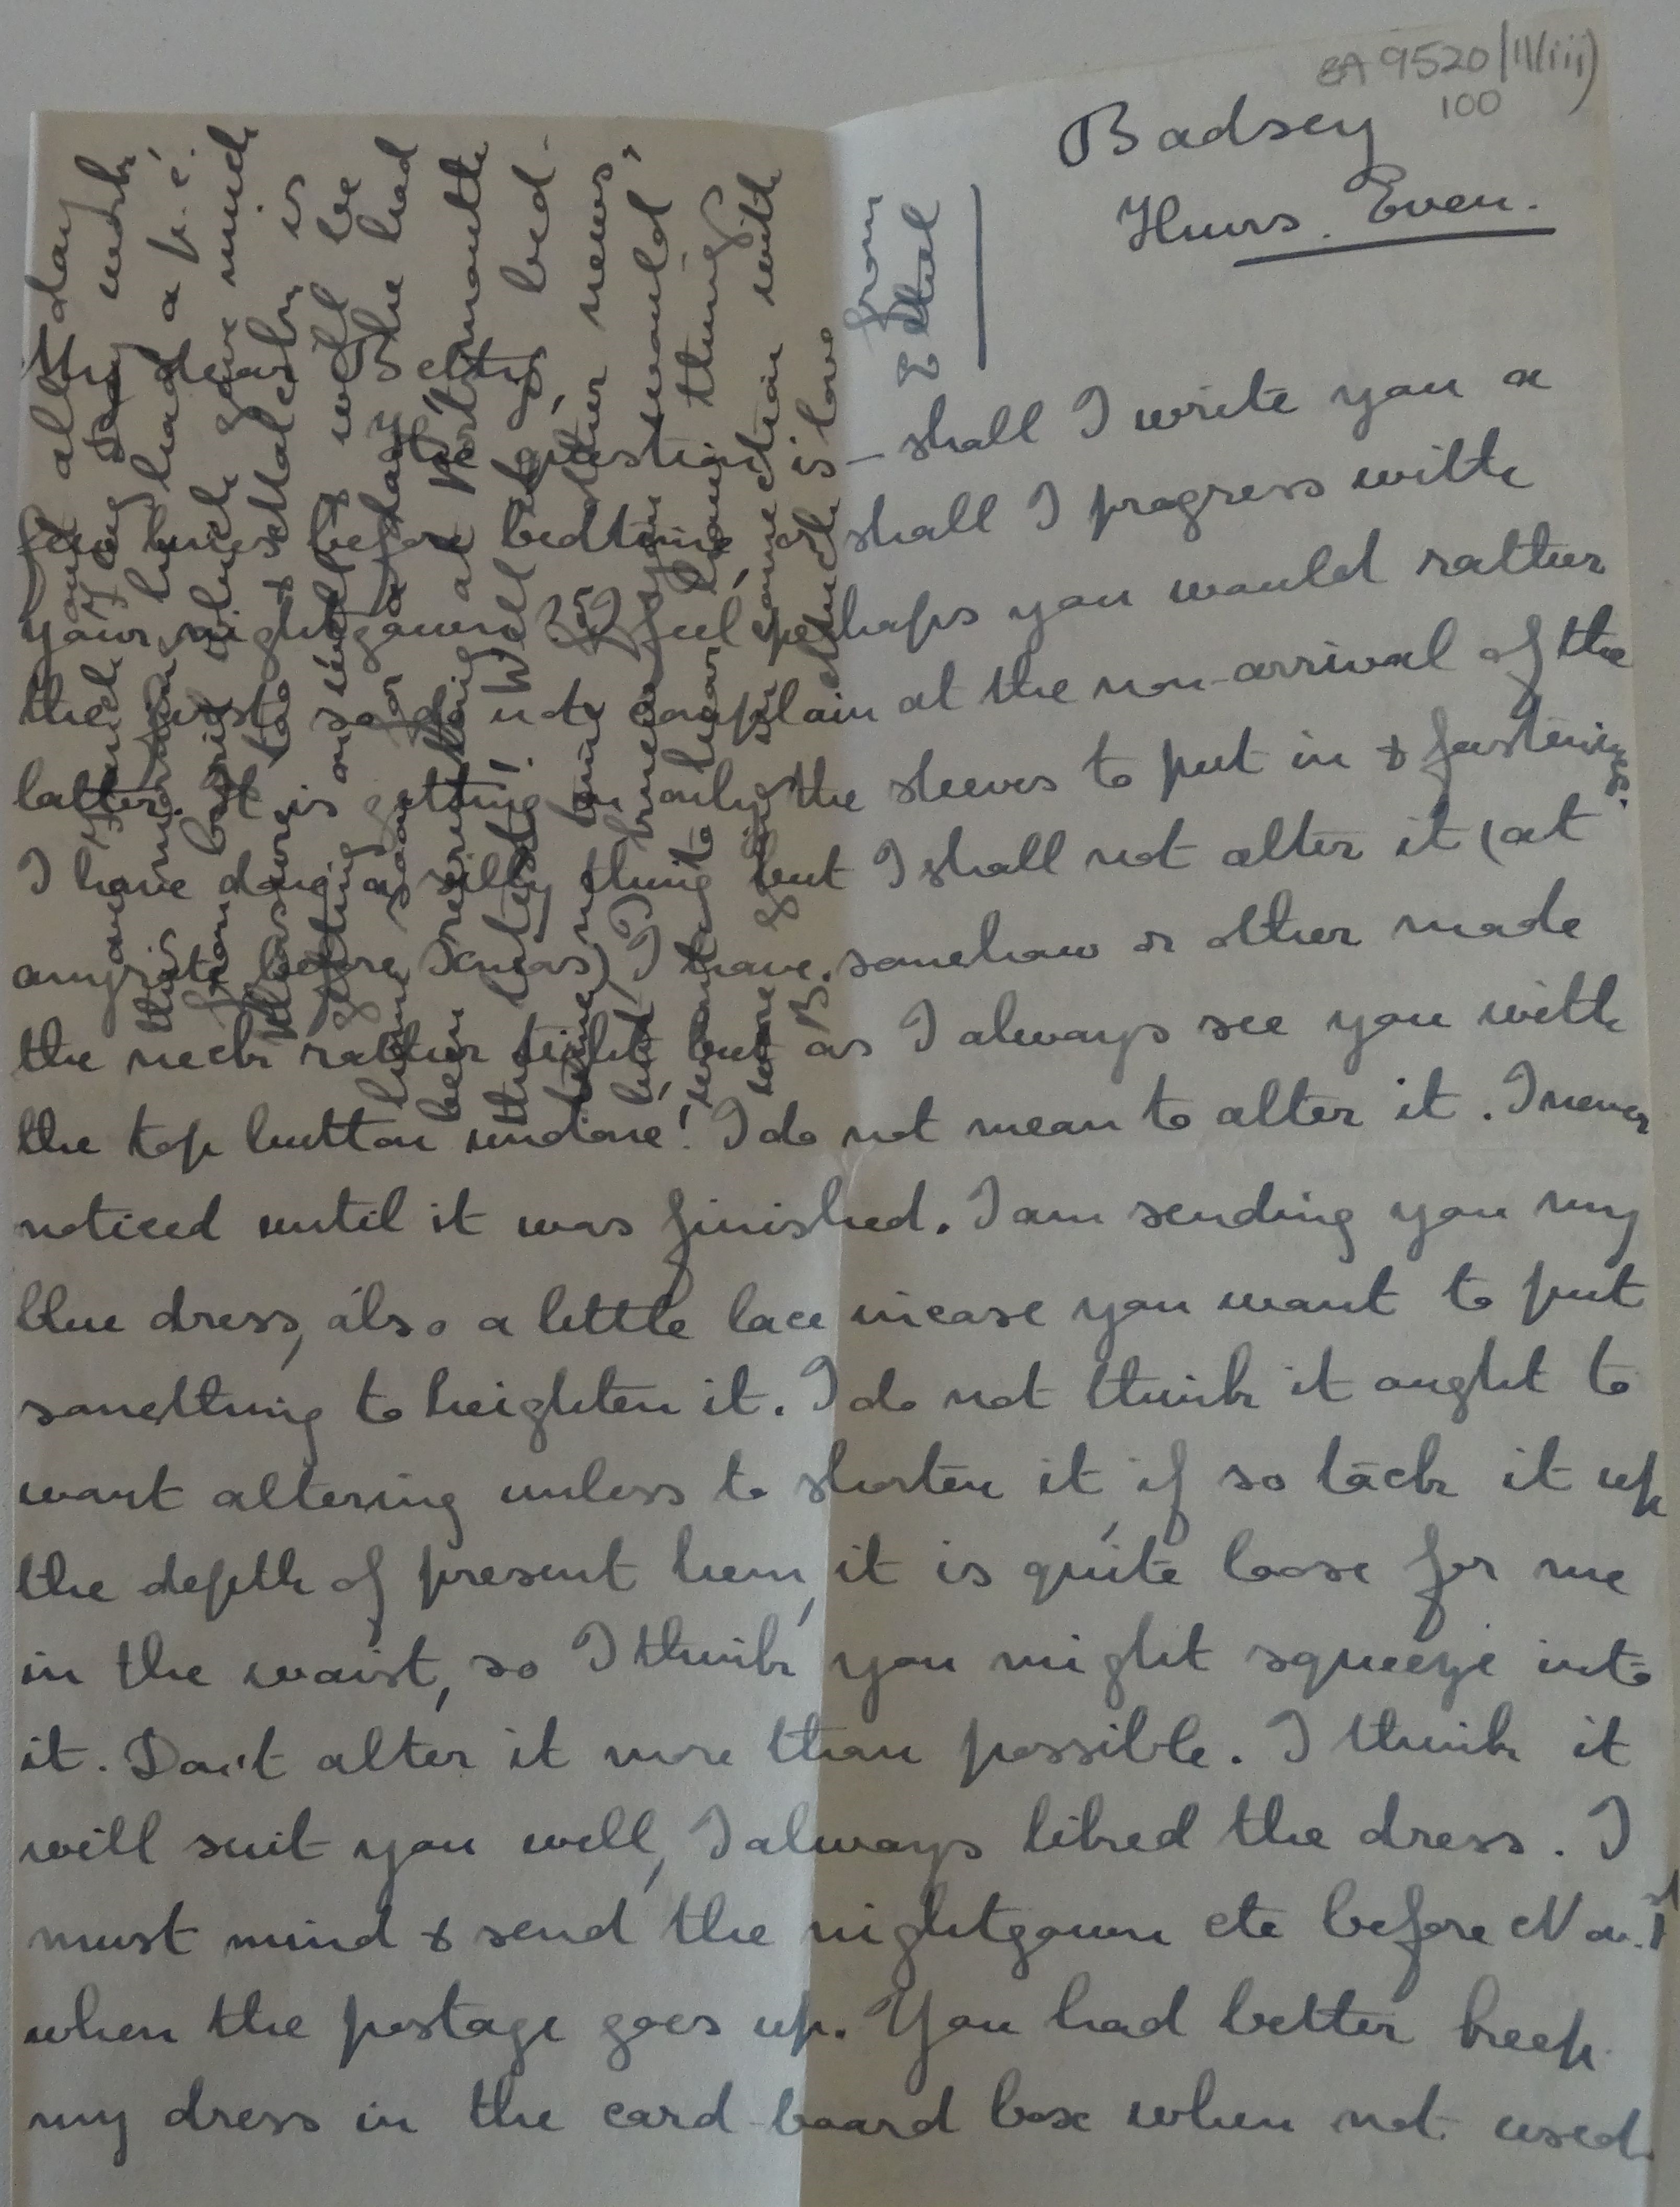 EA 9520/11(iii)
100
Badsey
Thurs. Even.
My dear Betty,
The question is – shall I write you a
few lines before bedtime, or shall I progress with
your nightgown? I feel perhaps you would rather
the first so do not complain at the non-arrival of the
latter. It is getting on only the sleeves to put in & fastenings.
I have done a silly thing but I shall not alter it (at
anyrate before Xmas) I have somehow or other made
the neck rather tight but as I always see you with
the top button undone! I do not mean to alter it. I never
noticed until it was finished. I am sending you my
blue dress, also a little lace incase you want to put
something to heighten it. I do not think it ought to
want altering unless to shorten it, if so tack it up
the depth of present hem, it is quite loose for me
in the waist, so I think you might squeeze into
it. Don't alter it more than possible. I think it
will suit you well, I always liked the dress. I
must mind & send the nightgown etc before Nov. 1st
when the postage goes up. You had better keep
my dress in the card-board box when not used.
out all day
work,
this morning had a p.c.
from which gave much
pleasure to Malcolm is
getting will be
home soon for a day. He had
been at Portsmouth
the latest! Well bed-
time no time other news,
but I knew you would
wanting to hear
more going in connection with
B. Much love
from
Ethel